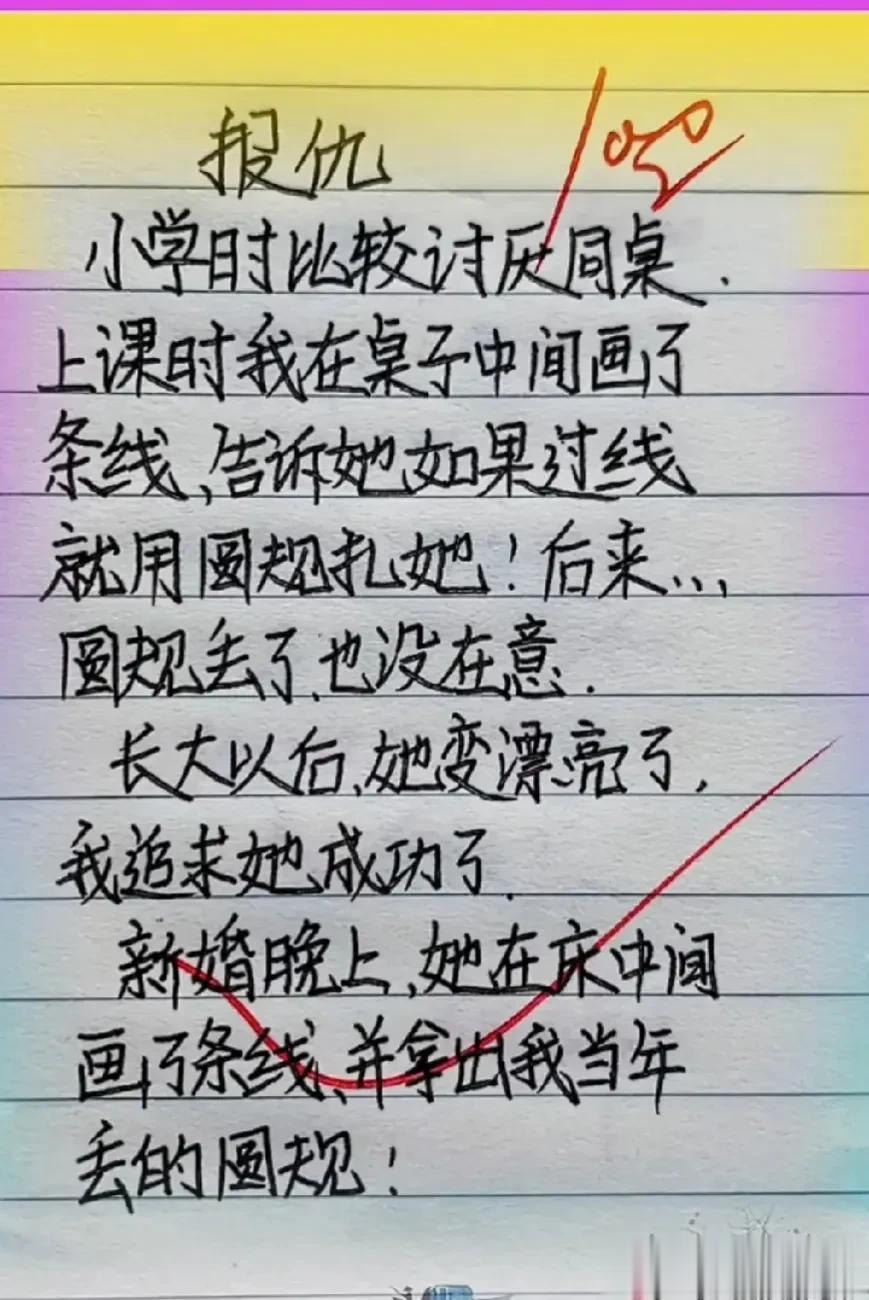 报仇
小学时比较讨厌同桌.
上课时我在桌子中间画了
条线,告诉她如果过线
就用圆规扎她!后来...
圆规丢了,也没在意.
长大以后,她变漂亮了,
我追求她成功了.
新婚晚上,她在床中间
画了条线,并拿出我当年
丢的圆规!